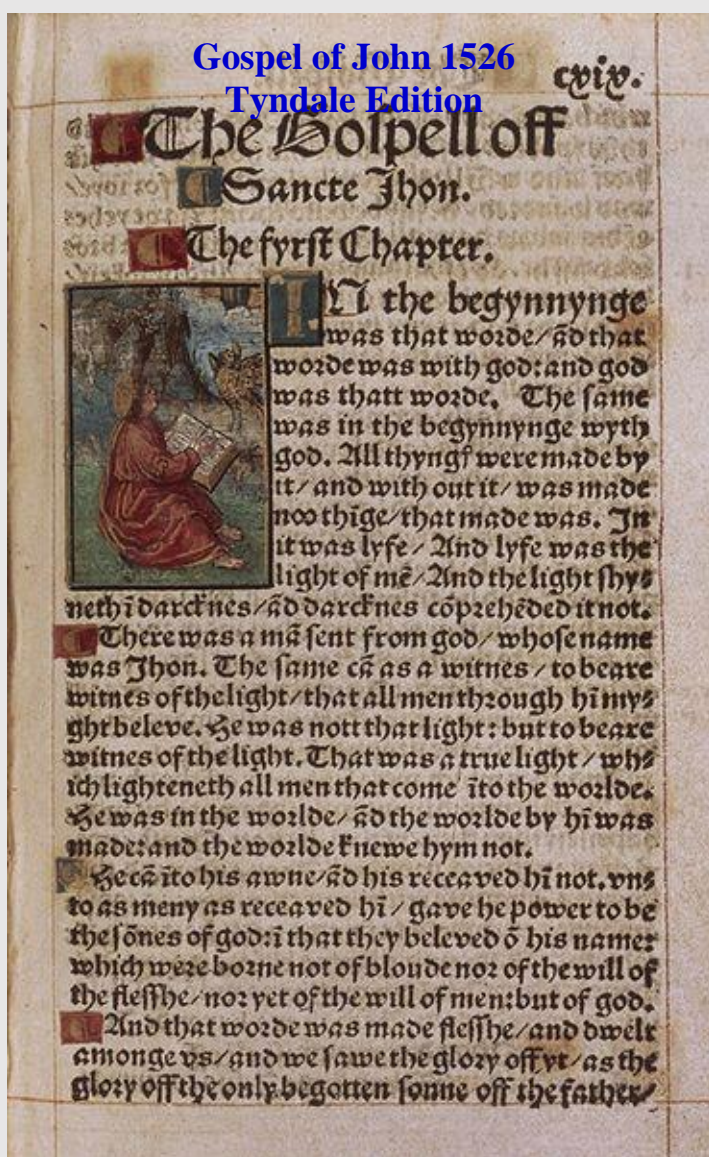 Gospel of John 1526
Tyndale Edition
cxix.
The Gospell off
Sancte Jhon.
The fyrst Chapter.
IN the begynnynge
was that worde/ ād that
worde was with god: and god
was thatt worde. The same
was in the begynnynge wyth
god. All thyngꝭ were made by
it/ and with out it/ was made
noo thīge/ that made was. In
it was lyfe/ And lyfe was the
light of mē/ And the light shy⸗
neth ī darcknes/ ād darcknes cōprehēded it not.
There was a mā sent from god/ whose name
was Jhon. The same cā as a witnes/ to beare
witnes of the light/ that all men through hī my⸗
ght beleve. He was nott that light: but to beare
witnes of the light. That was a true light/ wh⸗
ich lighteneth all men that come īto the worlde.
He was in the worlde/ ād the worlde by hī was
made: and the worlde knewe hym not.
He cā īto his awne/ ād his receaved hī not. vn⸗
to as meny as receaved hī/ gave he power to be
the sōnes of god: ī that they beleved ō his name:
which were borne not of bloude nor of the will of
the flesshe/ nor yet of the will of men: but of god.
And that worde was made flesshe/ and dwelt
amonge vs/ and we sawe the glory off yt/ as the
glory off the only begotten sonne off the father/